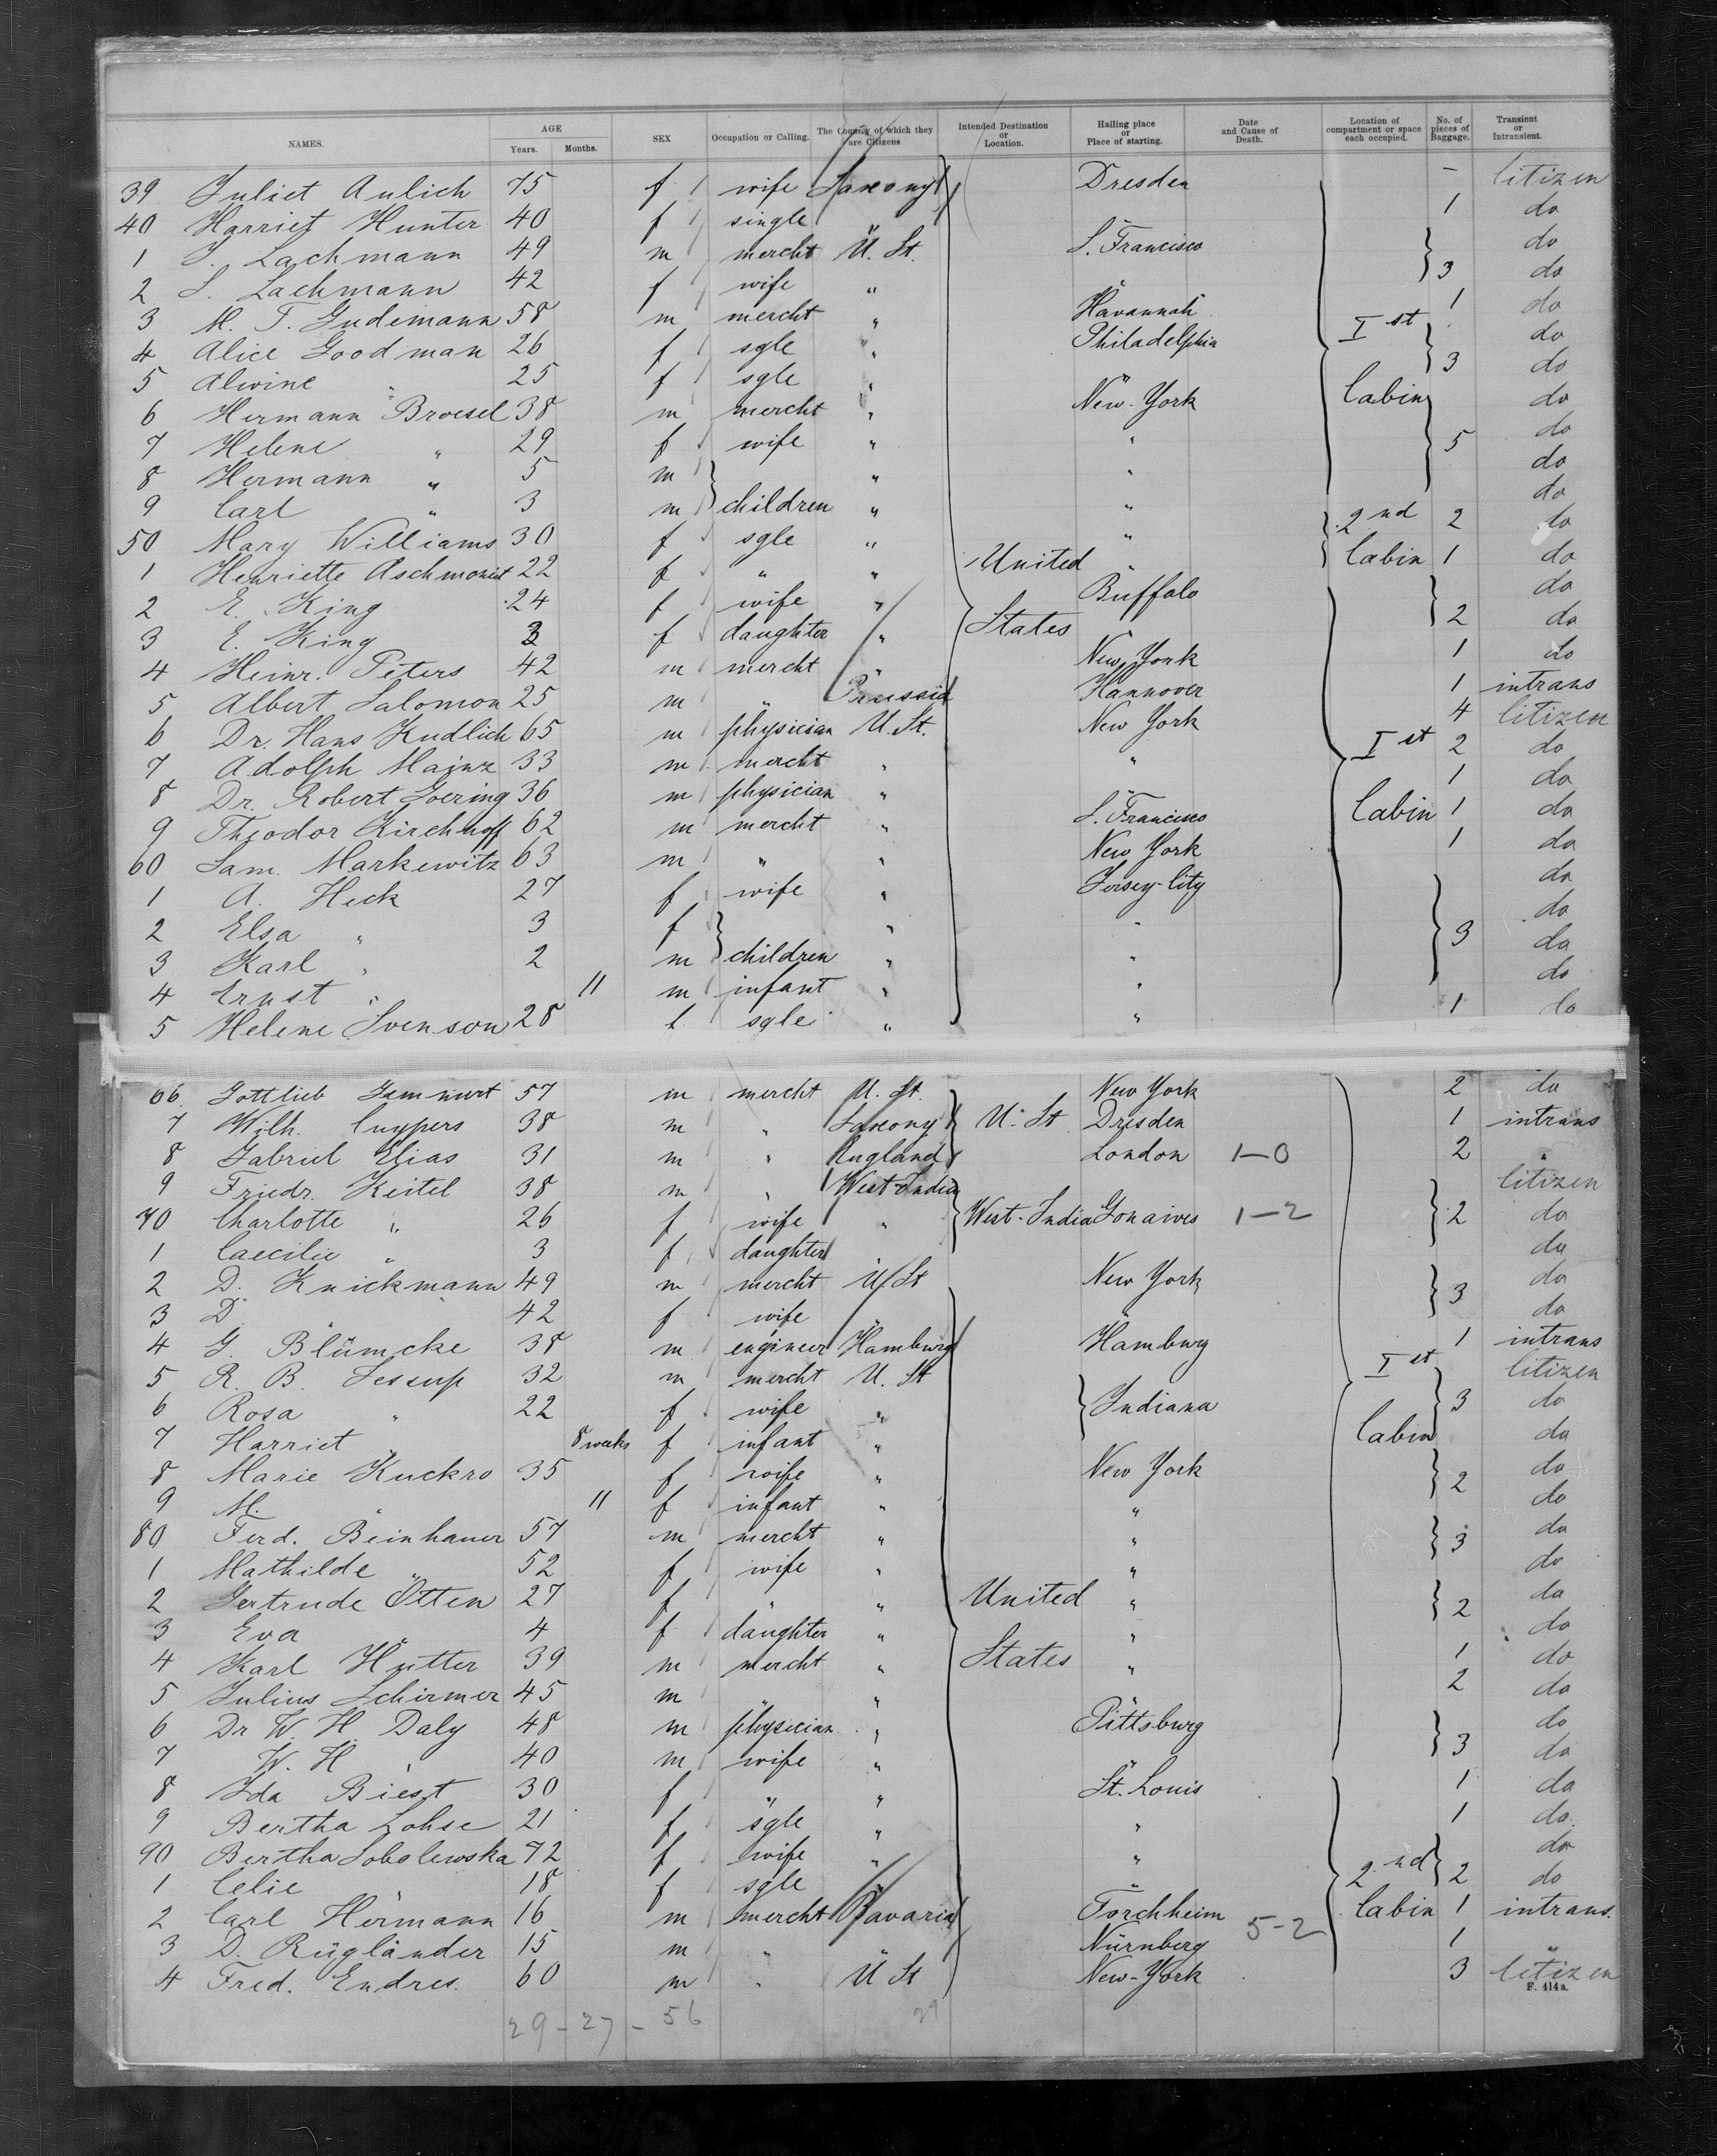 NAMES. AGE Years. Months. SEX Occupation or Calling. The Country of which they are Citizens Intended Destination or Location. Hailing place or Place of starting. Date and Cause of Death. Location of compartment or space each occupied. No. of pieces of Baggage. Transient or Intransient.
39 Juliet Aulich 75 f wife Saxony Dresden - Citizen
40 Harriet Hunter 40 f single " " 1 do
1 J. Lachmann 49 m mercht U. St. S. Francisco do
2 S. Lachmann 42 f wife " " 3 do
3 M. T. Gudemann 58 m mercht " Havannah 1 do
4 Alice Goodman 26 f sgle " Philadelphia Ist do
5 Alwine " 25 f sgle " " 3 do
6 Hermann Broesel 38 m mercht " New-York Cabin do
7 Helene " 29 f wife " " 5 do
8 Hermann " 5 m " " do
9 Carl " 3 m children " " do
50 Mary Williams 30 f sgle " " 2nd 2 do
1 Henriette 22 f " " United " Cabin 1 do
2 E. King 24 f wife " Buffalo do
3 E. King 3 f daughter " States " 2 do
4 Heinr. Peters 42 m mercht " New York 1 do
5 Albert Salomon 25 m " Prussia Hannover 1 intrans
6 Dr. Hans Kudlich 65 m physician U. St. New York 4 Citizen
7 Adolph Mainz 33 m mercht " " Ist 2 do
8 Dr. Robert Goering 36 m physician " " 1 do
9 Theodor Kirchhoff 62 m mercht " S. Francisco Cabin 1 do
60 Sam. Markewitz 63 m " " New York 1 do
1 A. Heck 27 f wife " Jersey-City do
2 Elsa " 3 f " " do
3 Karl " 2 m children " " 3 do
4 Ernst " 11 m infant " " do
5 Helene Svenson 28 f sgle " " 1 do
66 Gottlieb 57 m mercht U. St. New York 2 do
7 Wilh. Cuypers 38 m " Saxony U. St Dresden 1 intrans
8 Gabriel Elias 31 m " England London 1-0 2 "
9 Friedr. Keitel 38 m " West-India Citizen
70 Charlotte " 26 f wife " West-India Gonaives 1-2 2 do
1 Caecilie " 3 f daughter " do
2 D. Knickmann 49 m mercht U St New York do
3 D. " 42 f wife " 3 do
4 G. Blümcke 38 m engineer Hamburg Hamburg 1 intrans
5 R. B. Jessup 32 m mercht U. St Ist Citizen
6 Rosa " 22 f wife " Indiana 3 do
7 Harriet " 8 weeks f infant " Cabin do
8 Marie Kuckro 35 f wife " New York do
9 M. " 11 f infant " " 2 do
80 Ferd. Beinhauer 57 m mercht " " 3 do
1 Mathilde " 52 f wife " " do
2 Gertrude Otten 27 f " " United " 2 do
3 Eva " 4 f daughter " " do
4 Karl Hutter 39 m mercht " States " 1 do
5 Julius Schirmer 45 m " " " 2 do
6 Dr W. H. Daly 48 m physician " Pittsburg do
7 W. H. " 40 m wife " " 3 do
8 Ida Biest 30 f " " St. Louis 1 do
9 Bertha Lohse 21 f sgle " " 1 do
90 Bertha Sobolewska 72 f wife " " do
1 Celie " 18 f sgle " " 2nd 2 do
2 Carl Hermann 16 m mercht Bavaria Forchheim Cabin 1 intrans.
3 D. Rügländer 15 m " " Nürnberg 5-2 1 "
4 Fred. Endres. 60 m " U St New-York 3 Citizen
F. 414a.
29 - 27 - 56 29